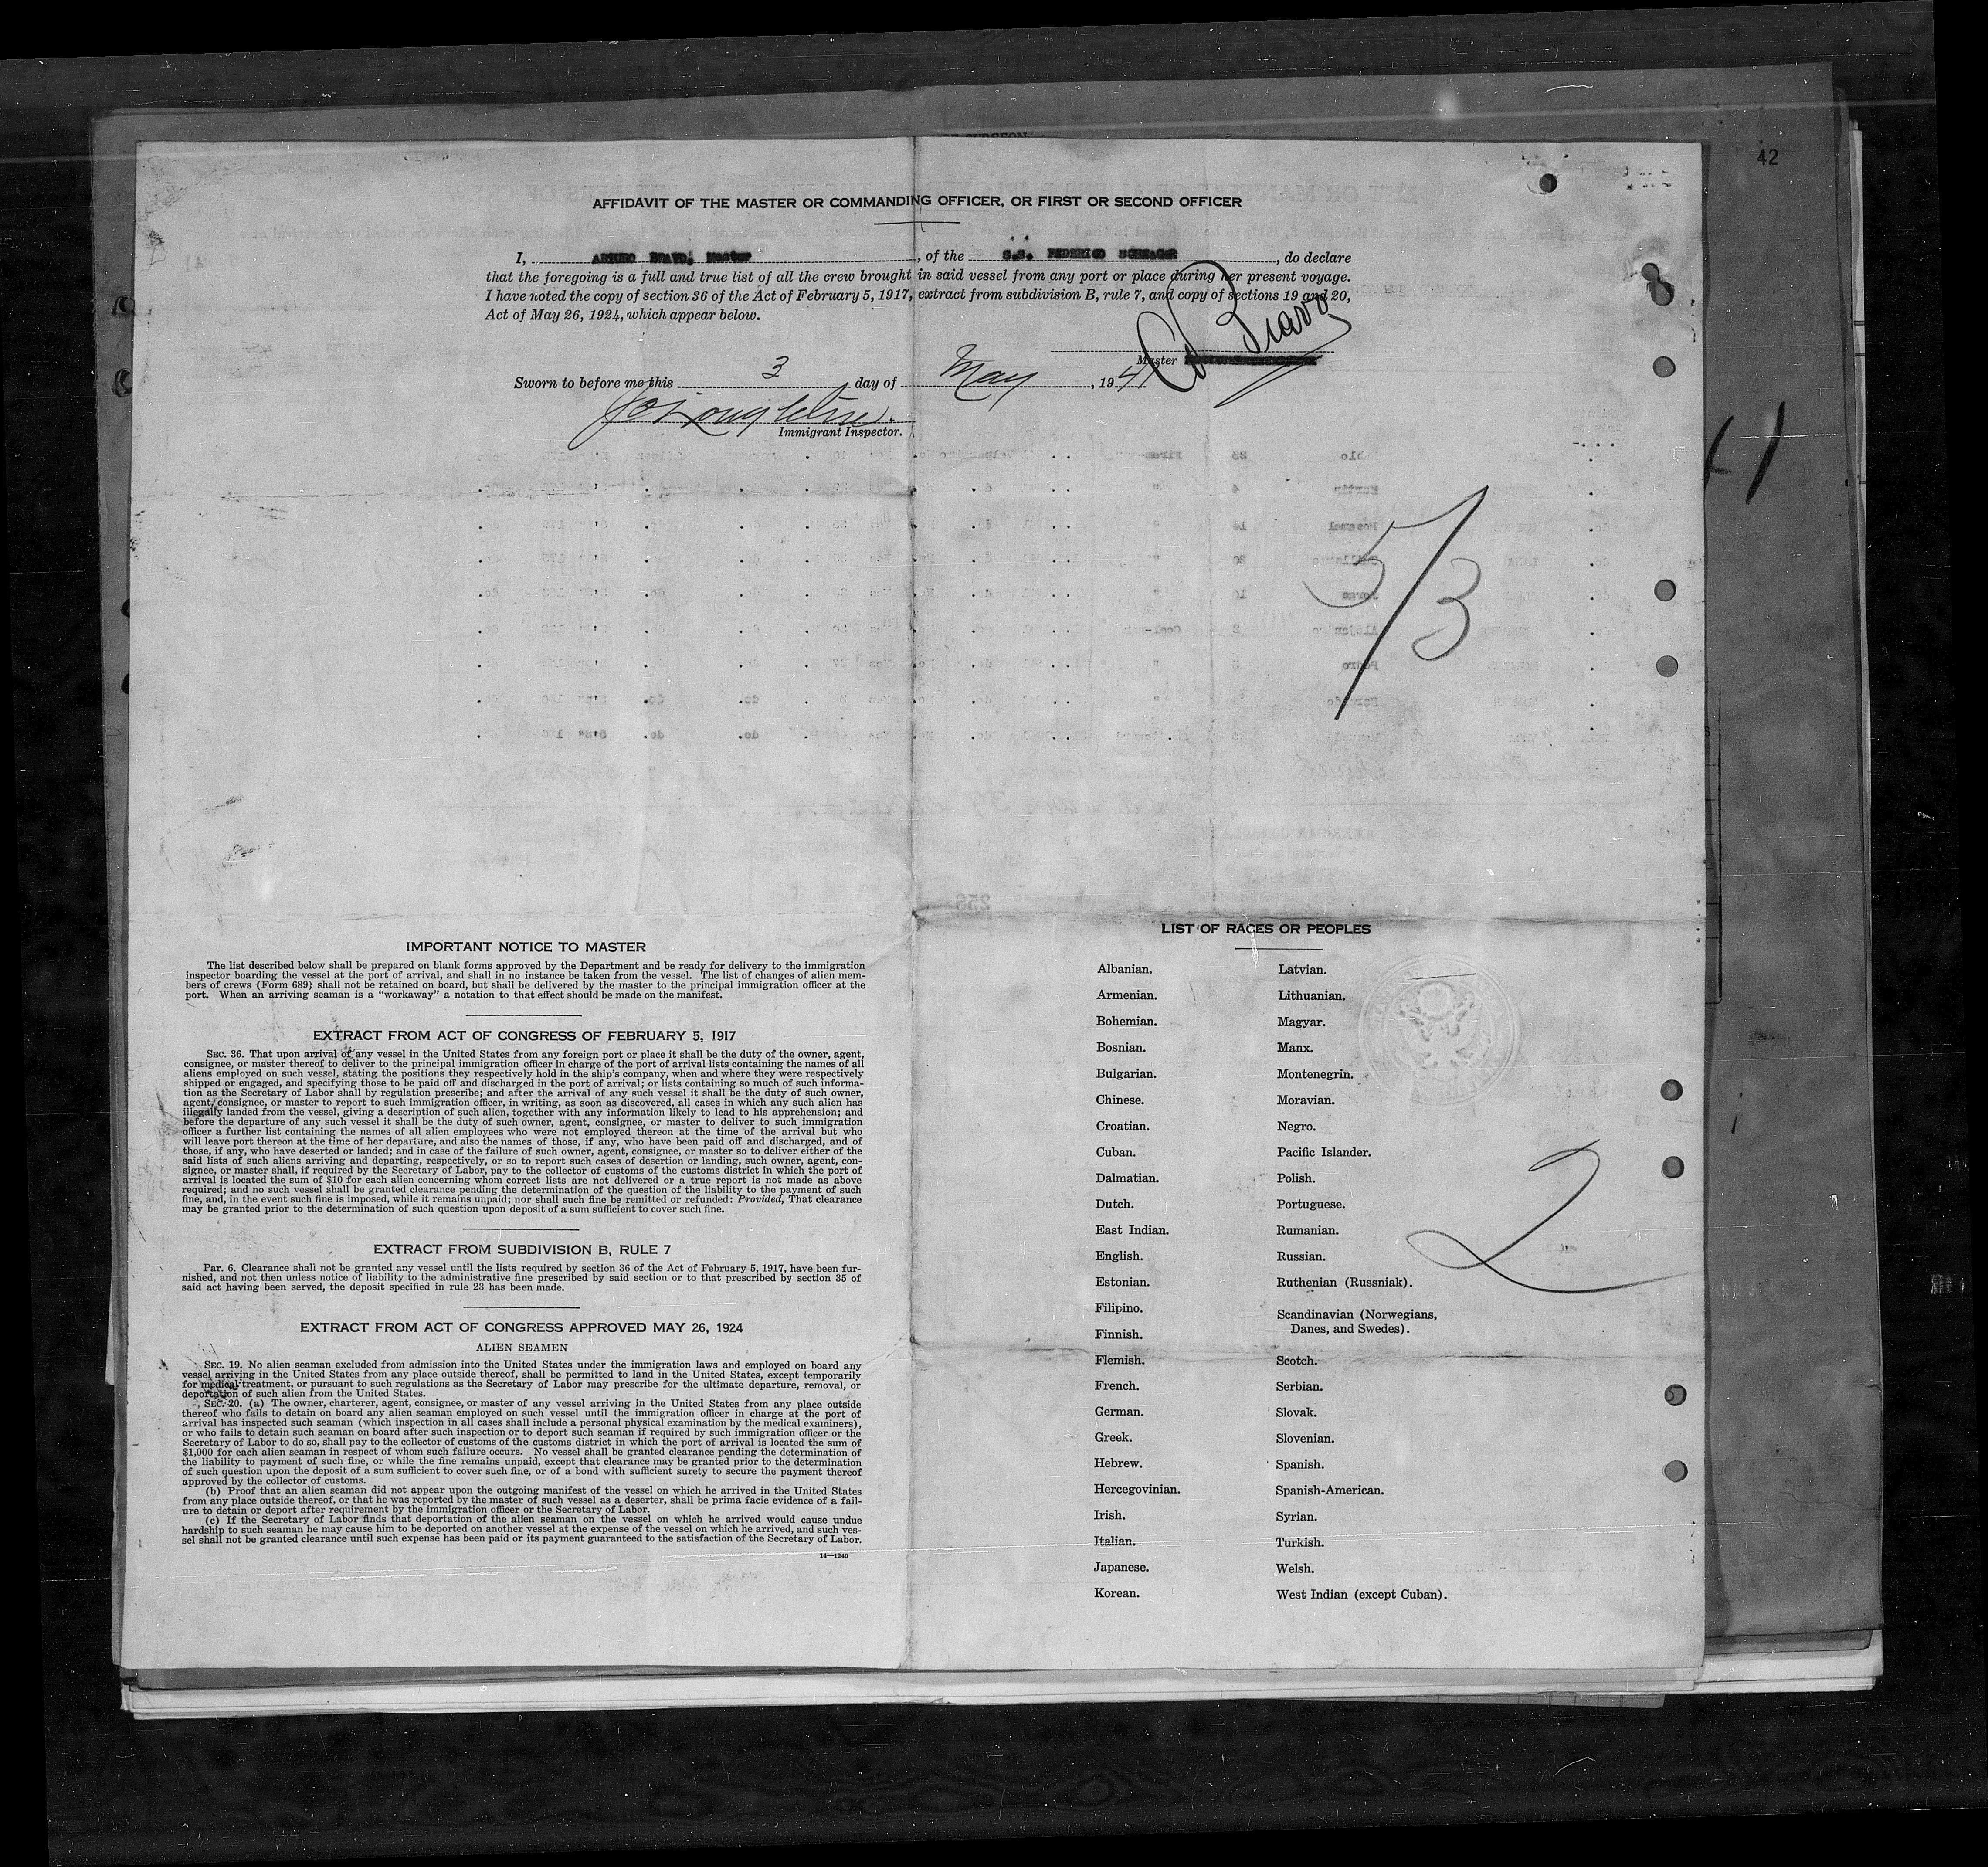 42
AFFIDAVIT OF THE MASTER OR COMMANDING OFFICER, OR FIRST OR SECOND OFFICER
I, ARTURO BRAVO, Master, of the S.S. FEDERICO SCHWAGER, do declare
that the foregoing is a full and true list of all the crew brought in said vessel from any port or place during her present voyage.
I have noted the copy of section 36 of the Act of February 5, 1917, extract from subdivision B, rule 7, and copy of sections 19 and 20,
Act of May 26, 1924, which appear below.
A Bravo
Master
Sworn to before me this 3 day of May, 1941
Immigrant Inspector.
5/3
IMPORTANT NOTICE TO MASTER
The list described below shall be prepared on blank forms approved by the Department and be ready for delivery to the immigration
inspector boarding the vessel at the port of arrival, and shall in no instance be taken from the vessel. The list of changes of alien mem-
bers of crews (Form 689) shall not be retained on board, but shall be delivered by the master to the principal immigration officer at the
port. When an arriving seaman is a "workaway" a notation to that effect should be made on the manifest.
EXTRACT FROM ACT OF CONGRESS OF FEBRUARY 5, 1917
SEC. 36. That upon arrival of any vessel in the United States from any foreign port or place it shall be the duty of the owner, agent,
consignee, or master thereof to deliver to the principal immigration officer in charge of the port of arrival lists containing the names of all
aliens employed on such vessel, stating the positions they respectively hold in the ship's company, when and where they were respectively
shipped or engaged, and specifying those to be paid off and discharged in the port of arrival; or lists containing so much of such informa-
tion as the Secretary of Labor shall by regulation prescribe; and after the arrival of any such vessel it shall be the duty of such owner,
agent, consignee, or master to report to such immigration officer, in writing, as soon as discovered, all cases in which any such alien has
illegally landed from the vessel, giving a description of such alien, together with any information likely to lead to his apprehension; and
before the departure of any such vessel it shall be the duty of such owner, agent, consignee, or master to deliver to such immigration
officer a further list containing the names of all alien employees who were not employed thereon at the time of the arrival but who
will leave port thereon at the time of her departure, and also the names of those, if any, who have been paid off and discharged, and of
those, if any, who have deserted or landed; and in case of the failure of such owner, agent, consignee, or master so to deliver either of the
said lists of such aliens arriving and departing, respectively, or so to report such cases of desertion or landing, such owner, agent, con-
signee, or master shall, if required by the Secretary of Labor, pay to the collector of customs of the customs district in which the port of
arrival is located the sum of $10 for each alien concerning whom correct lists are not delivered or a true report is not made as above
required; and no such vessel shall be granted clearance pending the determination of the question of the liability to the payment of such
fine, and, in the event such fine is imposed, while it remains unpaid; nor shall such fine be remitted or refunded: Provided, That clearance
may be granted prior to the determination of such question upon deposit of a sum sufficient to cover such fine.
EXTRACT FROM SUBDIVISION B, RULE 7
Par. 6. Clearance shall not be granted any vessel until the lists required by section 36 of the Act of February 5, 1917, have been fur-
nished, and not then unless notice of liability to the administrative fine prescribed by said section or to that prescribed by section 35 of
said act having been served, the deposit specified in rule 23 has been made.
EXTRACT FROM ACT OF CONGRESS APPROVED MAY 26, 1924
ALIEN SEAMEN
SEC. 19. No alien seaman excluded from admission into the United States under the immigration laws and employed on board any
vessel arriving in the United States from any place outside thereof, shall be permitted to land in the United States, except temporarily
for medical treatment, or pursuant to such regulations as the Secretary of Labor may prescribe for the ultimate departure, removal, or
deportation of such alien from the United States.
SEC. 20. (a) The owner, charterer, agent, consignee, or master of any vessel arriving in the United States from any place outside
thereof who fails to detain on board any alien seaman employed on such vessel until the immigration officer in charge at the port of
arrival has inspected such seaman (which inspection in all cases shall include a personal physical examination by the medical examiners),
or who fails to detain such seaman on board after such inspection or to deport such seaman if required by such immigration officer or the
Secretary of Labor to do so, shall pay to the collector of customs of the customs district in which the port of arrival is located the sum of
$1,000 for each alien seaman in respect of whom such failure occurs. No vessel shall be granted clearance pending the determination of
the liability to payment of such fine, or while the fine remains unpaid, except that clearance may be granted prior to the determination
of such question upon the deposit of a sum sufficient to cover such fine, or of a bond with sufficient surety to secure the payment thereof
approved by the collector of customs.
(b) Proof that an alien seaman did not appear upon the outgoing manifest of the vessel on which he arrived in the United States
from any place outside thereof, or that he was reported by the master of such vessel as a deserter, shall be prima facie evidence of a fail-
ure to detain or deport after requirement by the immigration officer or the Secretary of Labor.
(c) If the Secretary of Labor finds that deportation of the alien seaman on the vessel on which he arrived would cause undue
hardship to such seaman he may cause him to be deported on another vessel at the expense of the vessel on which he arrived, and such ves-
sel shall not be granted clearance until such expense has been paid or its payment guaranteed to the satisfaction of the Secretary of Labor.
14—1240
LIST OF RACES OR PEOPLES
Albanian.
Armenian.
Bohemian.
Bosnian.
Bulgarian.
Chinese.
Croatian.
Cuban.
Dalmatian.
Dutch.
East Indian.
English.
Estonian.
Filipino.
Finnish.
Flemish.
French.
German.
Greek.
Hebrew.
Hercegovinian.
Irish.
Italian.
Japanese.
Korean.
Latvian.
Lithuanian.
Magyar.
Manx.
Montenegrin.
Moravian.
Negro.
Pacific Islander.
Polish.
Portuguese.
Rumanian.
Russian.
Ruthenian (Russniak).
Scandinavian (Norwegians,
Danes, and Swedes).
Scotch.
Serbian.
Slovak.
Slovenian.
Spanish.
Spanish-American.
Syrian.
Turkish.
Welsh.
West Indian (except Cuban).
2